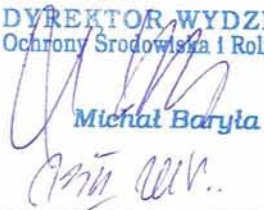 DYREKTOR WYDZI
Ochrony Środowiska i Rol
Michał Baryła